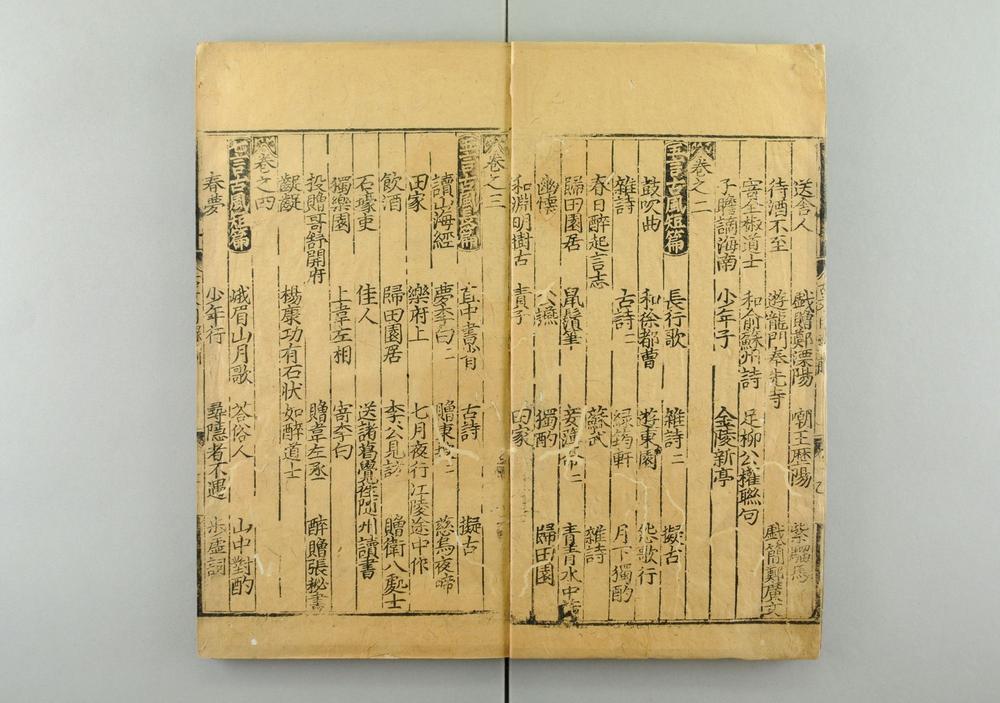 送舍人 戲贈鄭溧陽 嘲王歷陽 紫騮馬
待酒不至 遊龍門奉先寺 戲簡鄭廣文
寄全椒道士 和俞蘇州詩 足柳公權聯句
子瞻謫海南 少年子 金陵新亭
卷之二
五言古風短篇 長行歌 雜詩二 擬古
鼓吹曲 和徐都曹 遊東園 怨歌行
雜詩 古詩二 綠筠軒 月下獨酌
春日醉起言志 蘇武 雜詩
歸田園居 鼠鬚筆 妾薄命二 青青水中蒲
幽懷 公讌 獨酌 歸田園
和淵明擬古 責子 田家
卷之三
五言古風長篇 直中書省 古詩 擬古
讀山海經 夢李白二 贈東坡二 慈烏夜啼
田家 樂府上 七月夜行江陵途中作
飲酒 歸田園居 李公見訪 贈衛八處士
石壕吏 佳人 送諸葛覺往隨州讀書
獨樂園 上韋左相 寄李白
投贈哥舒開府 贈韋左丞 醉贈張秘書
齪齪 楊康功有石狀如醉道士
卷之四
七言古風短篇 峨眉山月歌 荅俗人 山中對酌
春夢 少年行 尋隱者不遇 步虛詞